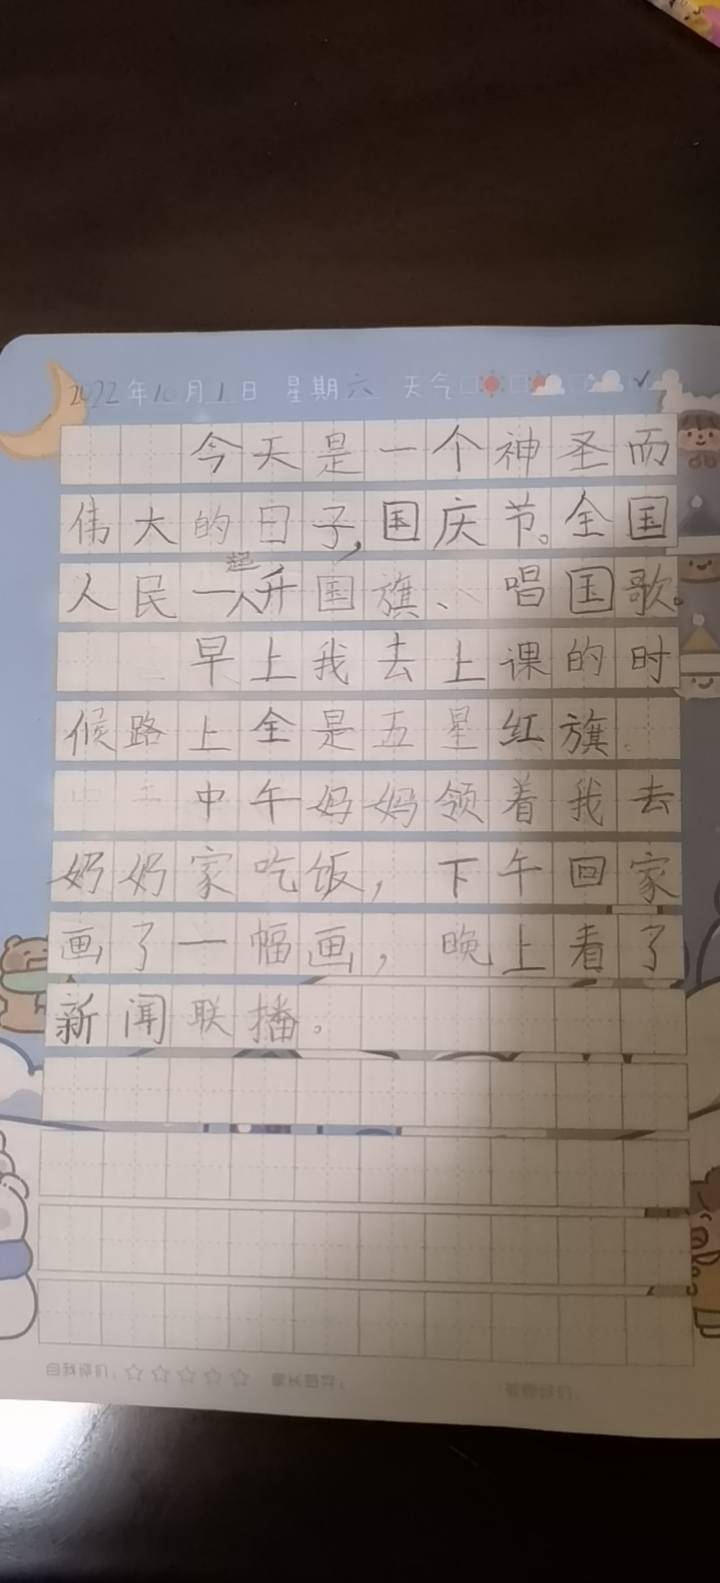 2022年10月1日 星期六 天气
今天是一个神圣而
伟大的日子,国庆节。全国
人民一起升国旗、唱国歌。
早上我去上课的时
候路上全是五星红旗.
中午妈妈领着我去
奶奶家吃饭,下午回家
画了一幅画,晚上看了
新闻联播。